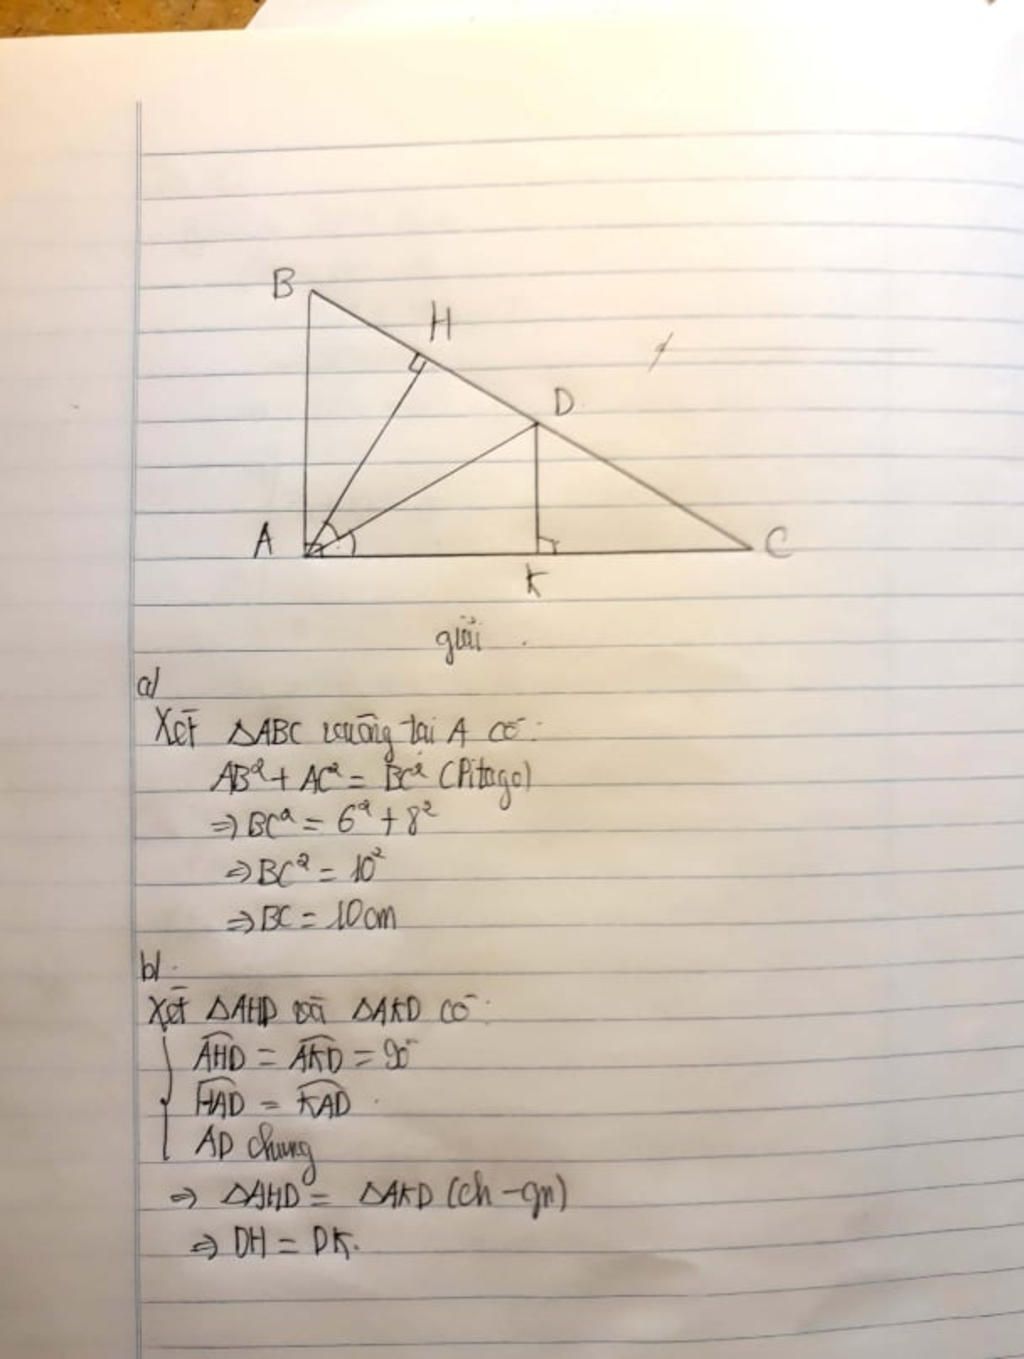 B
H
D
A
C
K
giải
a/
Xét △ABC vuông tại A có:
AB² + AC² = BC² (Pitago)
⇒ BC² = 6² + 8²
⇒ BC² = 10²
⇒ BC = 10cm
b/
Xét △AHD và △AKD có:
AHD = AKD = 90°
HAD = KAD
AD chung
⇒ △AHD = △AKD (ch - gn)
⇒ DH = DK.